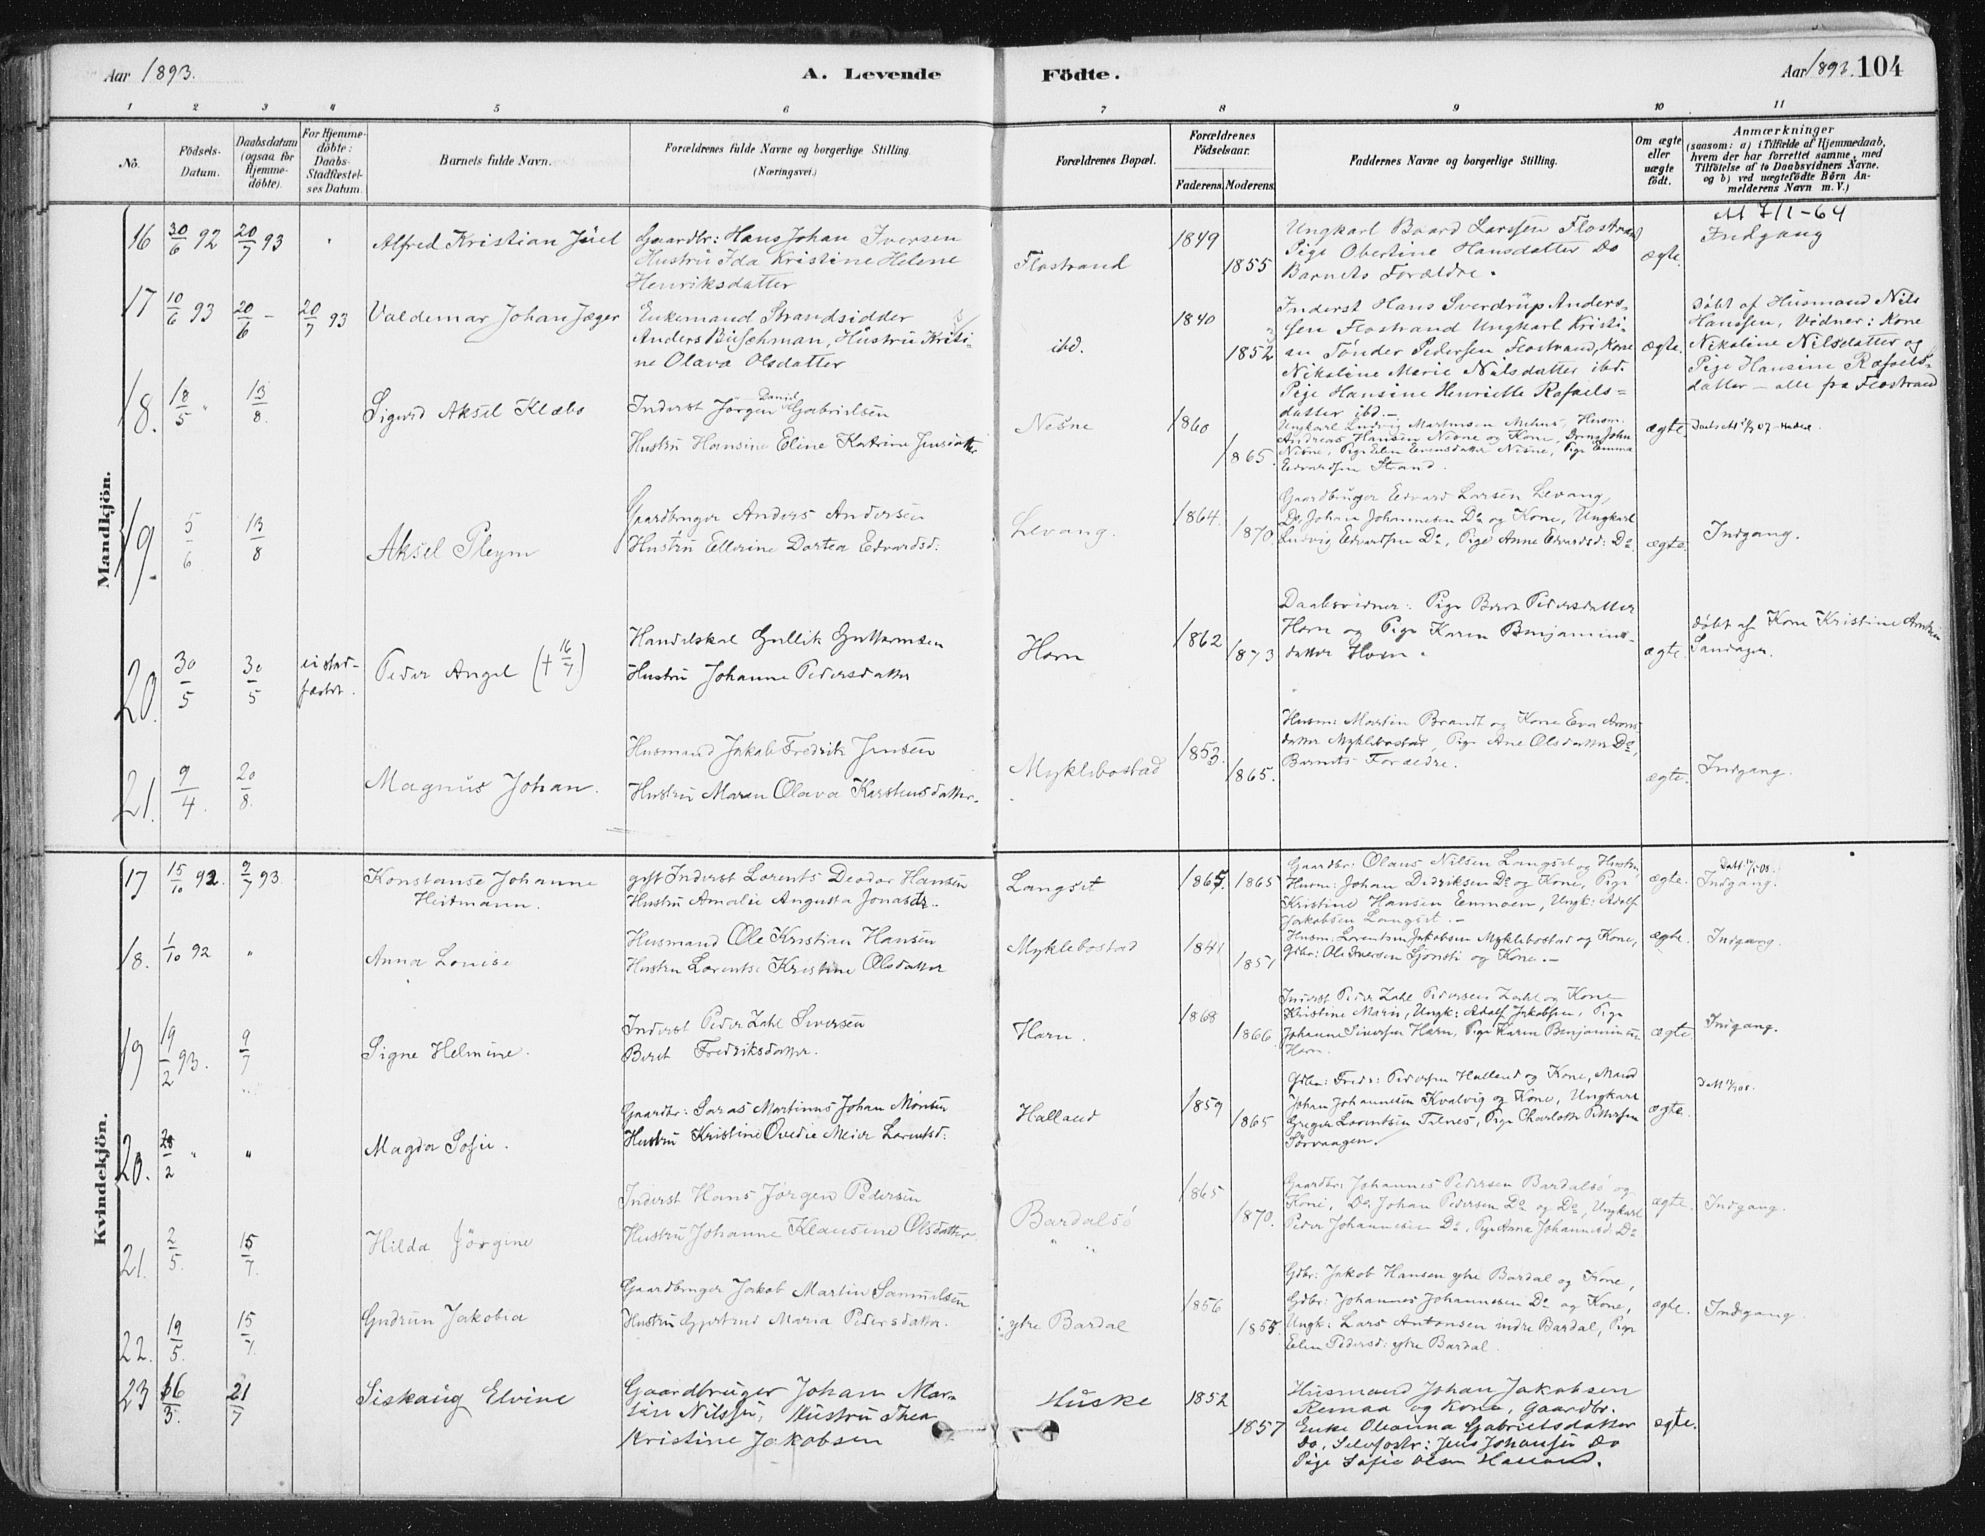 Aar 1893.
A. Levende
Födte.
Aar 1893. 104
1 2 3 4 5 6 7 8 9 10 11
No.
Födsels-Datum.
Daabsdatum (ogsaa for Hjemmedöbte).
For Hjemmedöbte: Daabs-Stadfæstelses Datum.
Barnets fulde Navn.
Forældrenes fulde Navne og borgerlige Stilling
(Næringsvei.)
Forældrenes Bopæl.
Forældrenes Födselsaar.
Faderens. Moderens.
Faddernes Navne og borgerlige Stilling.
Om ægte eller uægte födt.
Anmærkninger
(saasom: a) i Tilfælde af Hjemmedaab, hvem der har forrettet samme, med Tilföielse af to Daabsvidners Navne. og b) ved uægtefödte Börn Anmelderens Navn m. V.)
Mandkjön.
16 30/6 92 20/7 93 " Alfred Kristian Juel
Gaardbr: Hans Johan Iversen
Hustru Ida Kristine Helene
Henriksdatter
Flostrand 1849 1855
Ungkarl Baard Larssen Flostrand
Pige Obertine Hansdatter Do
Barnets Forældre.
ægte.
M 7/1-64
Indgang
17 10/6 93 20/6 - 20/7 93 Valdemar Johan Jæger
Enkemand Strandsidder
Anders Buschman, Hustru Kristi-
ne Olava Olsdatter
ibd. 1840 1852
Inderst Hans Sverdrup Anders-
sen Flostrand Ungkarl Kristi-
an Tønder Pedersen Flostrand, Kone
Nikoline Marie Nilsdatter ibd.
Pige Hansine Henriette Rafaels-
datter ibd.-
ægte.
Døbt af Husmand Nils
Hanssen, Vidner: Kone
Nikoline Nilsdatter og
Pige Hansine Rafaels-
datter - alle fra Flostrand
18. 18/5 " 13/8. Sigurd Aksel Klæbo
Inderst Jørgen Daniel Gabrielsen
Hustru Hansine Eline Katrine Jensdatter
Nesne 1860 1865.
Ungkarl Ludvig Martinsen Mehus, Husm:
Andreas Hansen Nesne og Kone, John
Nesne, Pige Elen Evensdatter Nesne, Pige Emma
Edvardsen Strand.
ægte.
19. 5/6. 13/8 Aksel Pleym
Gaardbruger Anders Andersen
Hustru Ellerine Dortea Edvardsd:
Levang. 1864. 1870.
Gaardbruger Edvard Larsen Levang,
Do, Johan Johannesen Do og Kone, Ungkarl
Ludvig Edvardsen Do, Pige Anne Edvardsd: Do.
ægte.
Indgang.
20. 30/5 30/5 ei stad-
fæstet. Peder Angel (+ 16/7)
Handelskal Gullik Guttormsen
Hustru Johanne Pedersdatter
Horn 1862 1873
Daabsvidner: Pige Berit Pedersdatter
Horn og Pige Karen Benjamins-
datter Horn.
ægte.
døbt af Kone Kristine
Sandager.
21. 9/4. 20/8 Magnus Johan.
Husmand Jakob Fredrik Jensen
Hustru Maren Olava Karstensdatter.
Myklebostad 1853. 1865.
Husm: Martin Brandt og Kone Eva Arons-
datter Myklebostad, Pige Ane Olsdatter Do,
Barnets Forældre.
ægte.
Indgang.
Kvindekjön.
17 15/10 92. 9/7 93. Konstanse Johanne
Heitmann.
gift Inderst Lorents Deodor Hansen
Hustru Amalie Augusta Jonasdr.
Langset 1865 1865
Gaardbr: Olaus Nilsen Langset og Hustru
Husm: Johan Didriksen Do og Kone, Pige
Kristine Hansen Enmoen, Ungk: Adolf
Jakobsen Langset.-
ægte.
Indgang.
18. 1/10 92 " Anna Louise
Husmand Ole Kristian Hansen
Hustru Lorentse Kristine Olsdatter
Myklebostad 1841 1851
Husm: Lorentsen Jakobsen Myklebostad og Kone,
Gdbr: Ole Iversen Sjonsti og Kone.-
ægte.
Indgang.
19 19/2 93. 9/7 Signe Helmine.
Inderst Peder Zahl Siversen
Beret Fredriksdatter.
Horn. 1868 1866.
Inderst Peder Zahl Pedersen Zahl og Kone
Kristine Marie, Ungk: Adolf Jakobsen, Pige
Johanne Siversen Horn, Pige Karen Benjaminsen
Horn.
ægte
Indgang.
20. 28/2 " " Magda Sofie.
Gaardbr: Saras Martinus Johan Monsen
Hustru Kristine Ovedie Meier Lorntsd:
Halland 1859 1865
Gdbr: Fredr: Pedersen Halland og Kone, Mand
Johan Johannesen Kvalvig og Kone, Ungkarl
Greger Lorentsen Tilnes, Pige Charlotte Pettersen
Sørvaagen.
ægte.
21. 2/5. 15/7. Hilda Jørgine
Inderst Hans Jørgen Pedersen
Hustru Johanne Klausine Olsdatter.
Bardalsø
" "
1865 1870.
Gaardbr: Johannes Pedersen Bardalsø og
Kone, Do: Johan Pedersen Do og Do, Ungkarl
Peder Johannesen Do, Pige Anna Johannesd. Do.
ægte.
Indgang.
22. 19/5. 15/7. Gudrun Jakobia
Gaardbruger Jakob Martin Samuelsen
Hustru Gjertrud Maria Pedersdatter.
ytre Bardal 1856 1855.
Gdbr: Jakob Hansen ytre Bardal og Kone,
Gdbr: Johannes Johannesen Do og Kone,
Ungk: Lars Antonsen indre Bardal, Pige
Elen Pedersd: ytre Bardal.
ægte.
Indgang.
23 16/3. 21/7 Siskaug Elvine
Gaardbruger Johan Mar-
tin Nilssen, Hustru Thea
Kristine Jakobsen
Huske 1852 1857
Husmand Johan Jakobsen
Remaa og Kone, Gaardbr.
Enke Oleanna Gabrielsdatter
Do, Selvfostr: Jens Johansen Do
Pige Sofie Olsen Halland.
ægte.